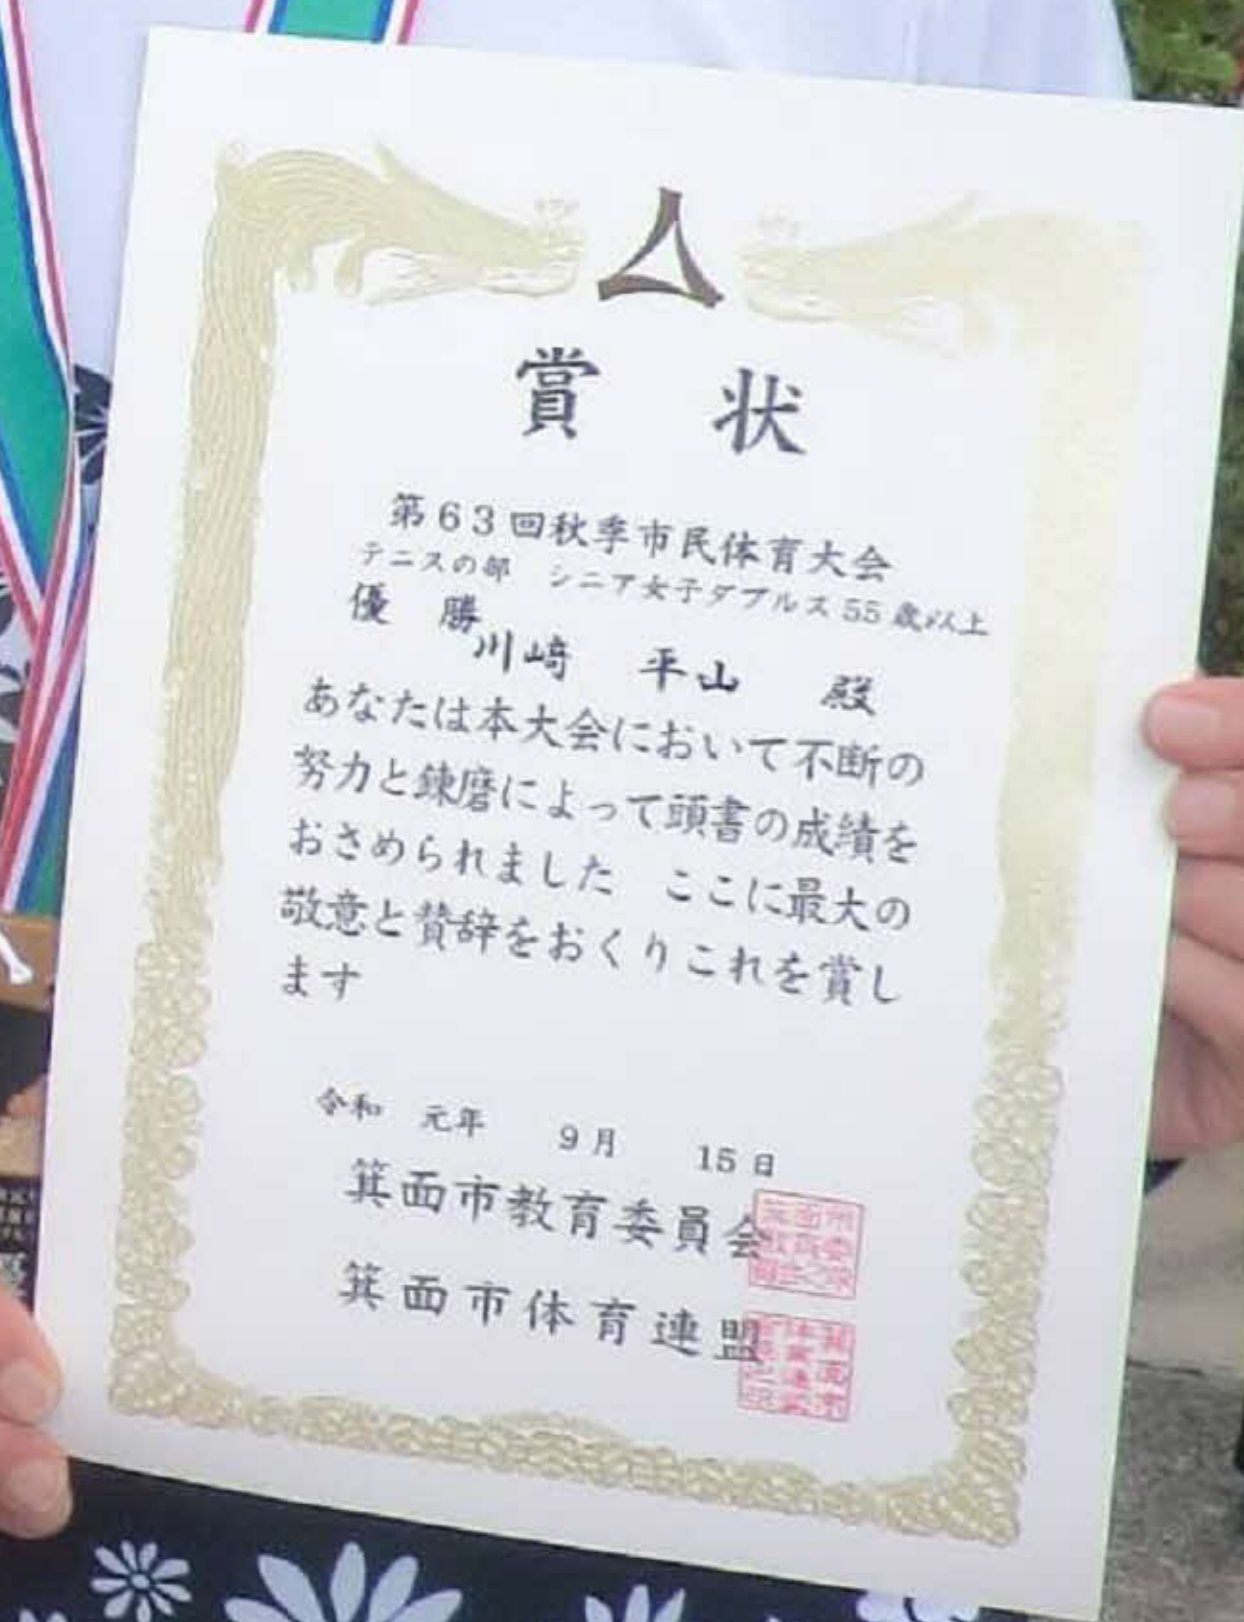 賞 状
第63回秋季市民体育大会
テニスの部 シニア女子ダブルス 55 歳以上
優 勝
川﨑 平山 殿
あなたは本大会において不断の
努力と錬磨によって頭書の成績を
おさめられました ここに最大の
敬意と賛辞をおくりこれを賞し
ます
令和 元年 9月 15日
箕面市教育委員会
箕面市体育連盟